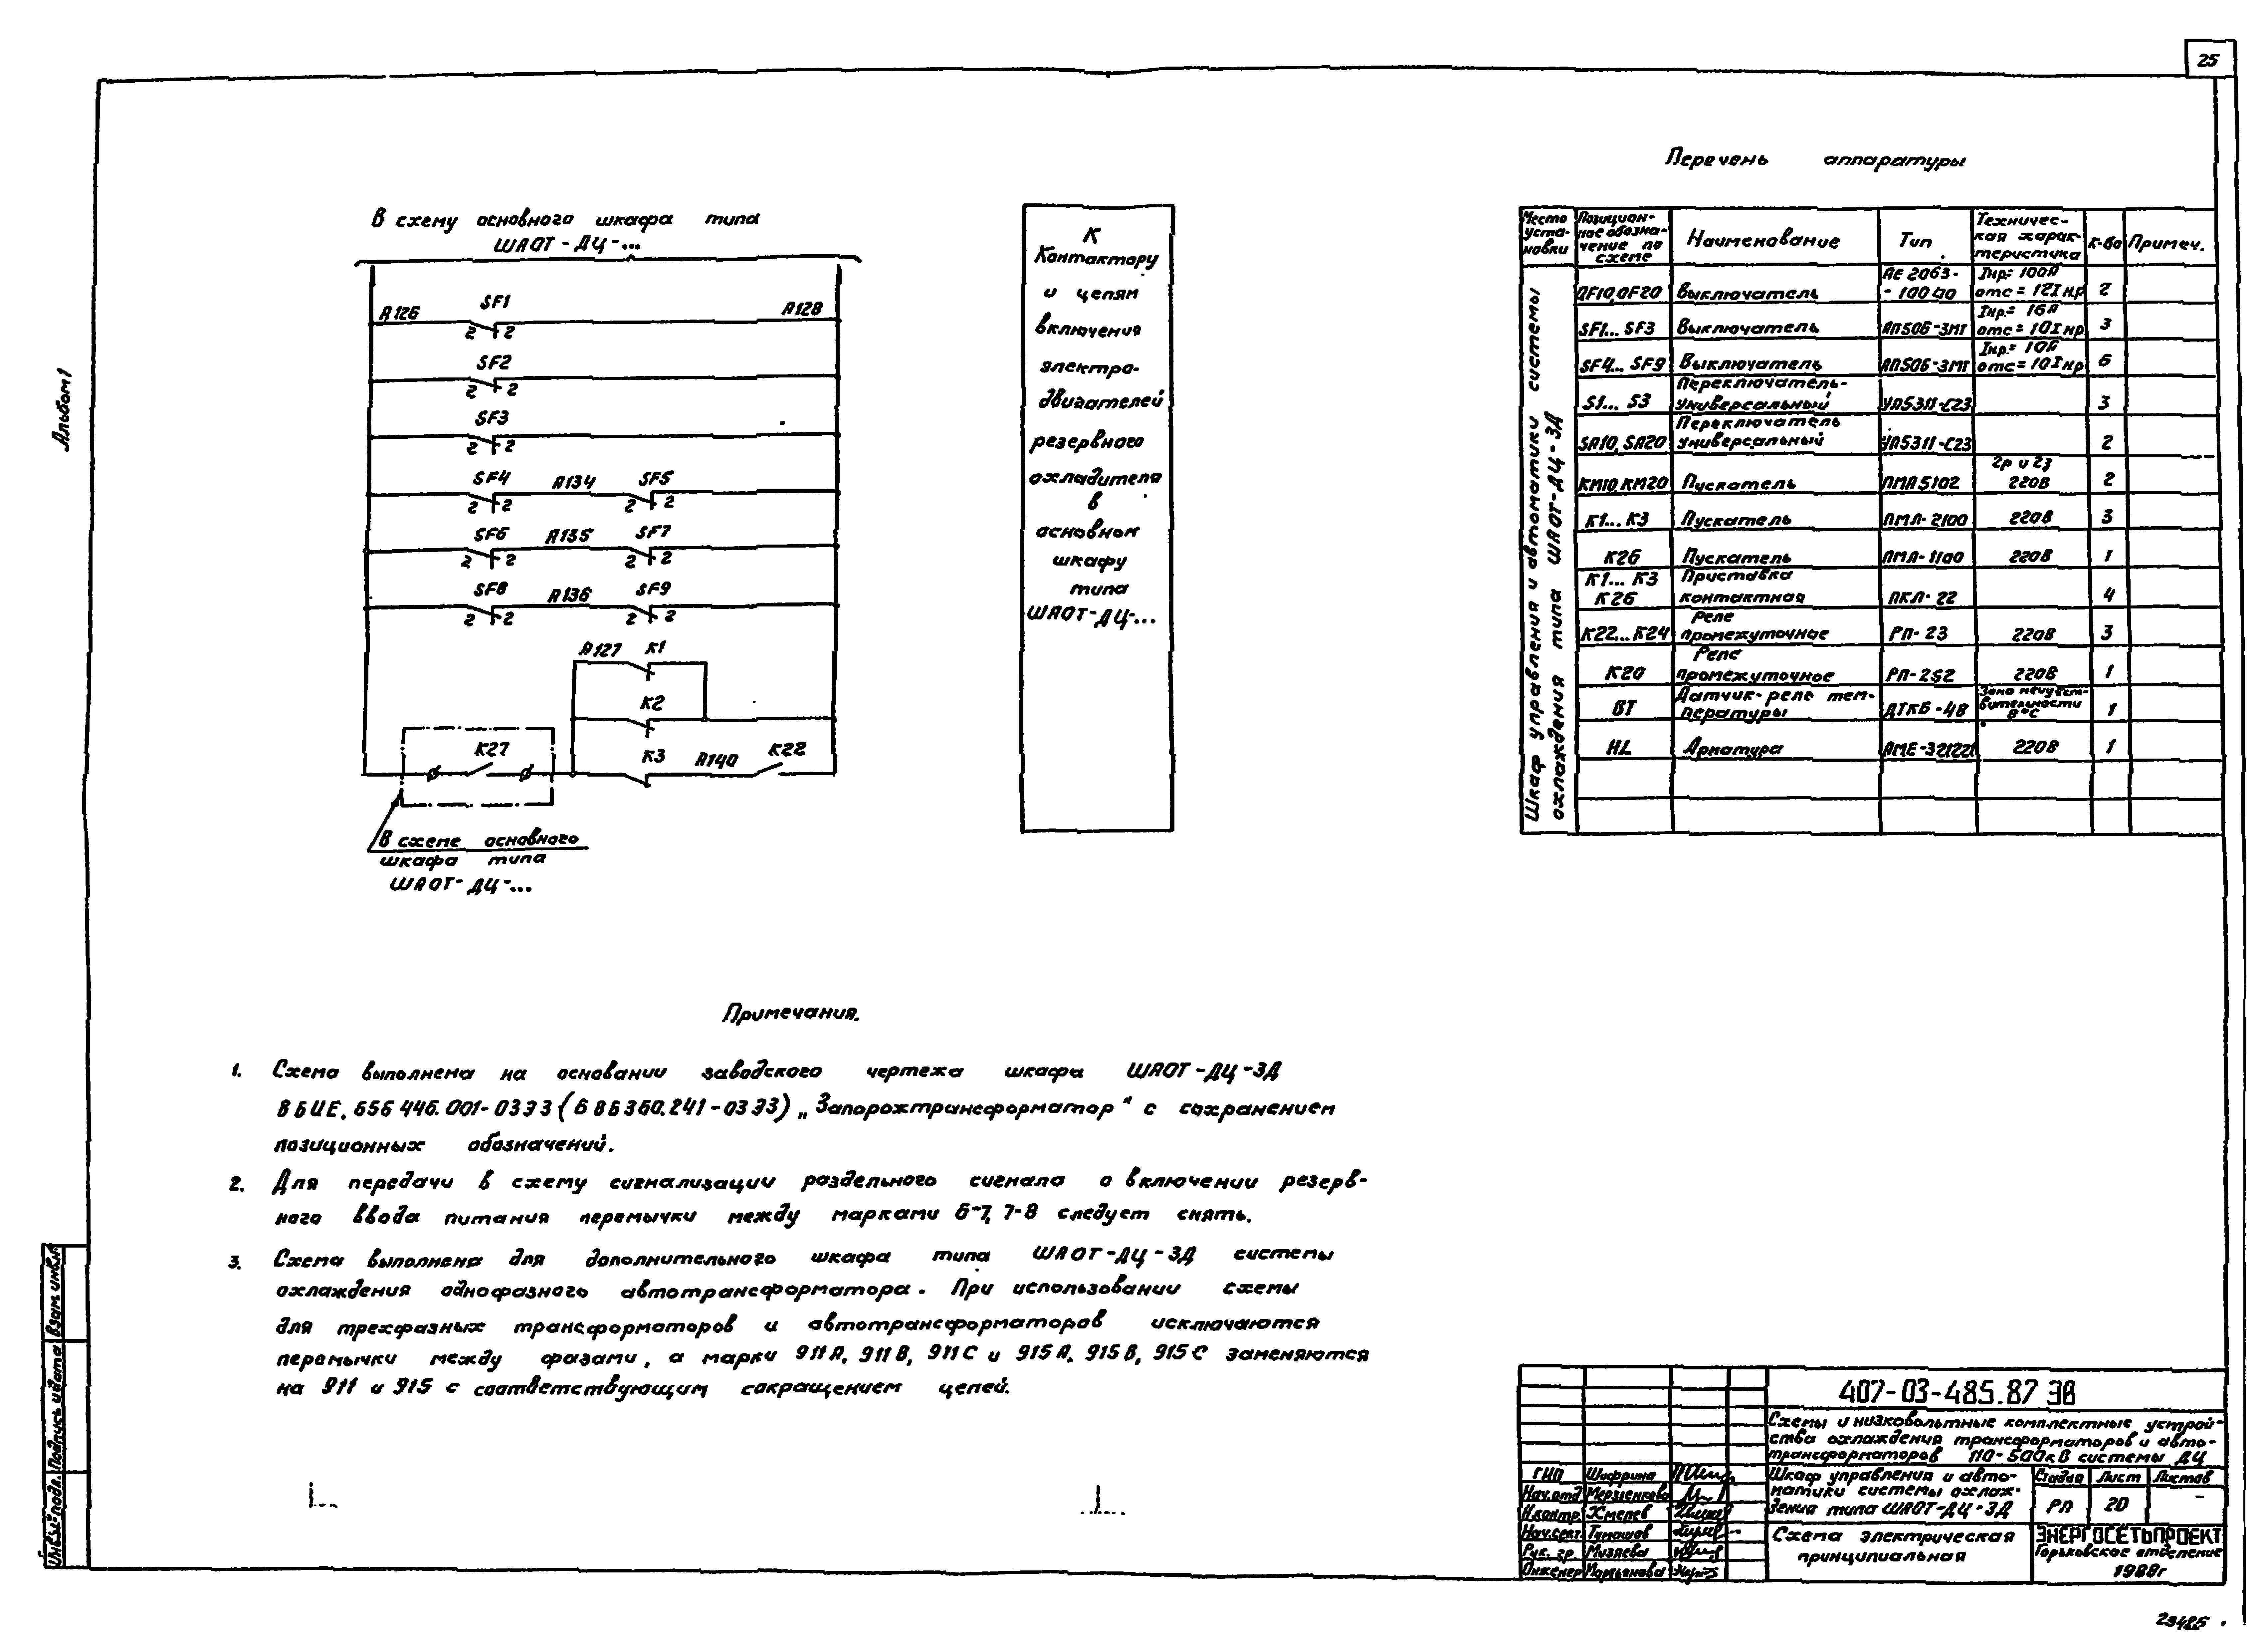 25
Альбом 1
В схему основного шкафа типа
ШАОТ-ДЦ-...
А126
SF1
А128
2 2
SF2
2 2
SF3
2 2
SF4 А134 SF5
2 2 2 2
SF6 А135 SF7
2 2 2 2
SF8 А136 SF9
2 2 2 2
А127 К1
К2
К27 К3 А140 К22
В схеме основного
шкафа типа
ШАОТ-ДЦ-...
К
Контактору
и цепям
включения
электро-
двигателей
резервного
охладителя
в
основном
шкафу
типа
ШАОТ-ДЦ-...
Перечень аппаратуры
Место установки
Позицион-
ное обозна-
чение по
схеме
Наименование
Тип
Техничес-
кая харак-
теристика
К-во
Примеч.
Шкаф управления и автоматики системы
охлаждения типа ШАОТ-ДЦ-3Д
QF10, QF20 Выключатель АЕ 2063-
-100 Iнр= 100А
отс = 12Iнр 2
SF1... SF3 Выключатель АП50Б-3МТ Iнр= 16А
отс = 10Iнр 3
SF4... SF9 Выключатель АП50Б-3МТ Iнр= 10А
отс = 10Iнр 6
S1... S3 Переключатель-
универсальный УП5311-С23 3
SA10, SA20 Переключатель
универсальный УП5311-С23 2
КМ10, КМ20 Пускатель ПМА 5102 2р и 2з
220В 2
К1... К3 Пускатель ПМЛ-2100 220В 3
К26 Пускатель ПМЛ-1100 220В 1
К1... К3
К26 Приставка
контактная ПКЛ-22 4
К22... К24 Реле
промежуточное РП-23 220В 3
К20 Реле
промежуточное РП-252 220В 1
ВТ Датчик-реле тем-
пературы ДТКБ-48 Зона нечувст-
вительности
8°С 1
HL Арматура АМЕ-321221 220В 1
Примечания.
1. Схема выполнена на основании заводского чертежа шкафа ШАОТ-ДЦ-3Д
ВБИЕ.656 446.001-03Э3 (6 БВ360.241-03 Э3) „Запорожтрансформатор" с сохранением
позиционных обозначений.
2. Для передачи в схему сигнализации раздельного сигнала о включении резерв-
ного ввода питания перемычки между марками 6-7, 7-8 следует снять.
3. Схема выполнена для дополнительного шкафа типа ШАОТ-ДЦ-3Д системы
охлаждения однофазного автотрансформатора. При использовании схемы
для трехфазных трансформаторов и автотрансформаторов исключаются
перемычки между фазами, а марки 911А, 911В, 911С и 915А, 915В, 915С заменяются
на 911 и 915 с соответствующим сокращением цепей.
Инв.№ подл. Подпись и дата Взам.инв.№
407-03-485.87 ЭВ
Схемы и низковольтные комплектные устрой-
ства охлаждения трансформаторов и авто-
трансформаторов 110-500кВ системы ДЦ
ГИП Шифрина
Нач.отд Мерзленкова
Н.контр. Хмелев
Нач.сект. Тумашов
Рук. гр. Мизяева
Инженер Мартьянова
Шкаф управления и авто-
матики системы охлаж-
дения типа ШАОТ-ДЦ-3Д
Стадия Лист Листов
РП 20 -
Схема электрическая
принципиальная
ЭНЕРГОСЕТЬПРОЕКТ
Горьковское отделение
1988г
23485